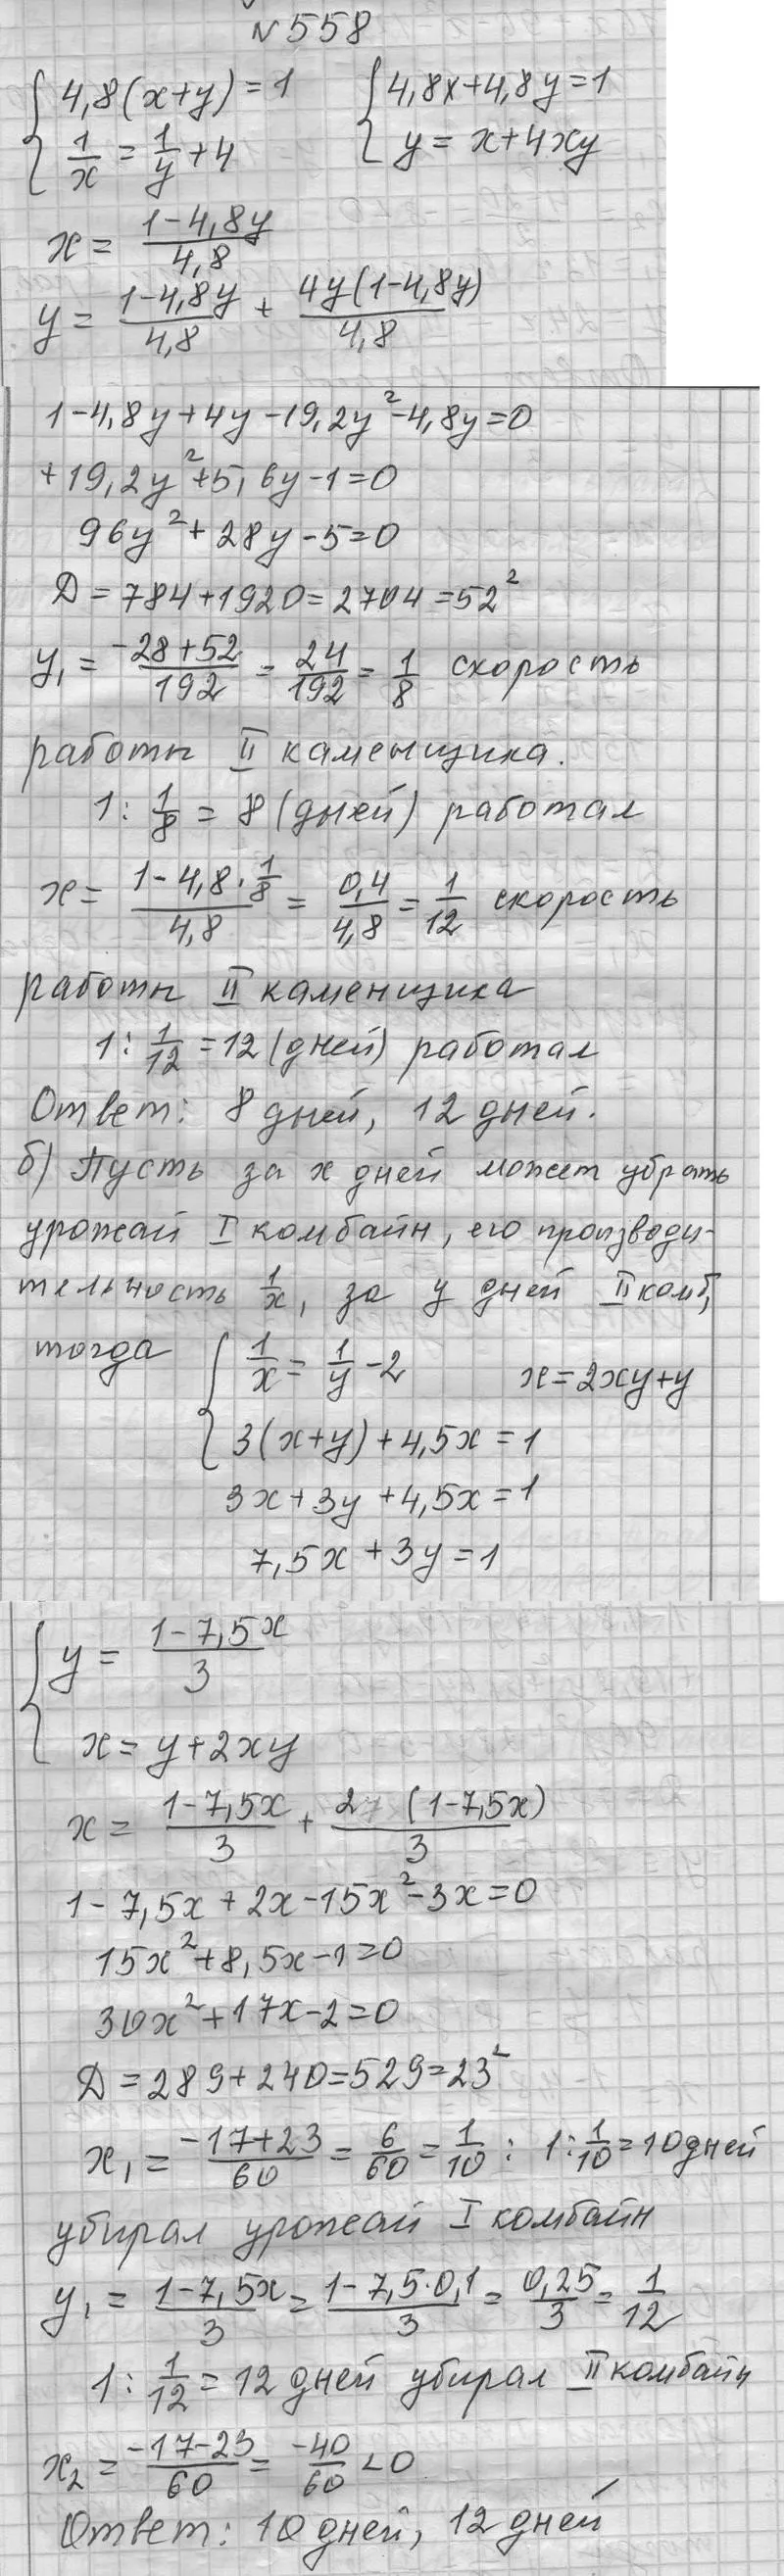 №558
{4,8(x+y)=1   {4,8x+4,8y=1
{1/x = 1/y + 4   {y = x+4xy
x = (1-4,8y)/4,8
y = (1-4,8y)/4,8 + 4y(1-4,8y)/4,8
1-4,8y+4y-19,2y²-4,8y=0
+19,2y²+5,6y-1=0
96y²+28y-5=0
D=784+1920=2704=52²
y₁ = (-28+52)/192 = 24/192 = 1/8 скорость
работы II каменщика.
1 : 1/8 = 8 (дней) работал
x = (1-4,8·1/8)/4,8 = 0,4/4,8 = 1/12 скорость
работы II каменщика
1 : 1/12 = 12 (дней) работал
Ответ: 8 дней, 12 дней.
б) Пусть за x дней может убрать
урожай I комбайн, его производи-
тельность 1/x, за y дней II комб,
тогда {1/x = 1/y - 2   x=2xy+y
{3(x+y)+4,5x=1
3x+3y+4,5x=1
7,5x+3y=1
{y = (1-7,5x)/3
{x = y+2xy
x = (1-7,5x)/3 + 2 (1-7,5x)/3
1-7,5x+2x-15x²-3x=0
15x²+8,5x-1=0
30x²+17x-2=0
D=289+240=529=23²
x₁ = (-17+23)/60 = 6/60 = 1/10 : 1 : 1/10 = 10 дней
убирал урожай I комбайн
y₁ = (1-7,5x)/3 = (1-7,5·0,1)/3 = 0,25/3 = 1/12
1 : 1/12 = 12 дней убирал II комбайн
x₂ = (-17-23)/60 = -40/60 < 0
Ответ: 10 дней, 12 дней